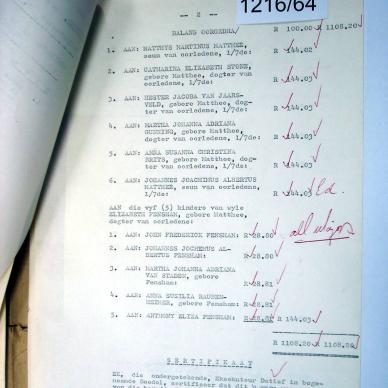 1216/64
-- 2 --
BALANS OORGEDRA R 100.00 R 1108.20
1. AAN: MATTHYS MARTINUS MATTHEE,
seun van oorledene, 1/7de: R 144.02
2. AAN: CATHARINA ELIZABETH STONE,
gebore Matthee, dogter
van oorledene, 1/7de: R 144.03
3. AAN: HESTER JACOBA VAN JAARS-
VELD, gebore Matthee, dog-
ter van oorledene, 1/7de: R 144.03
4. AAN: MARTHA JOHANNA ADRIANA
GUNNING, gebore Matthee,
dogter van oorledene, 1/7de: R 144.03
5. AAN: ANNA SUSANNA CHRISTINA
BRITS, gebore Matthee, dog-
ter van oorledene, 1/7de: R 144.03
6. AAN: JOHANNES JOACHIMUS ALBERTUS
MATTHEE, seun van oorledene,
1/7de: R 144.03
AAN die vyf (5) kinders van wyle
ELIZABETH FENSHAM, gebore Matthee,
dogter van oorledene:
1. AAN: JOHN FREDERICK FENSHAM: R 28.80
all
2. AAN: JOHANNES JOCHEMUS AL-
BERTUS FENSHAM: R 28.80
3. AAN: MARTHA JOHANNA ADRIANA
VAN STADEN, gebore
Fensham: R 28.81
4. AAN: ANNA SUSILIA
gebore Fensham: R 28.81
5. AAN: ANTHONY FENSHAM: R 28.81 R 144.03
R 1108.20 R 1108.20
SERTIFIKAAT
EK, die ondergetekende, Eksekuteur Datief in
Boedel, sertifiseer dat dit